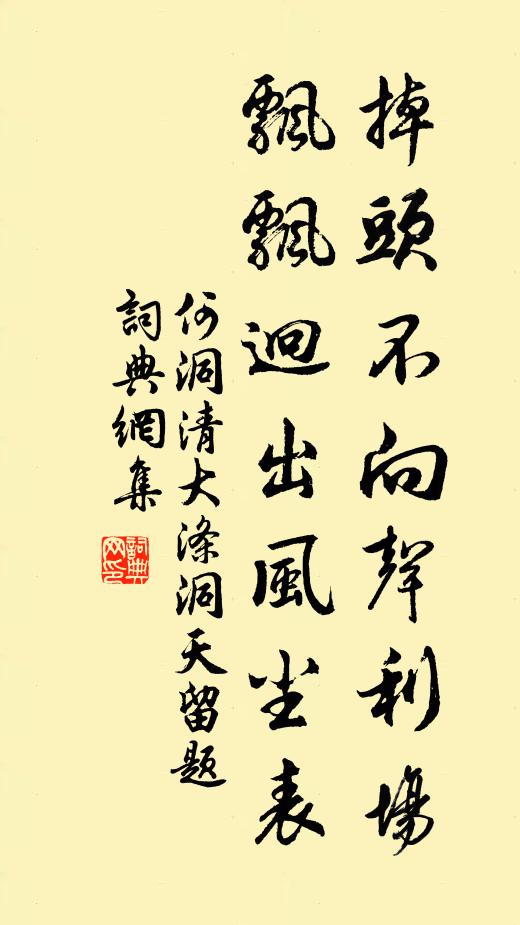 掉頭不向聲利場
飄飄迥出風尘表
何洞清大滌洞天留题
詞典網集
詞典网印